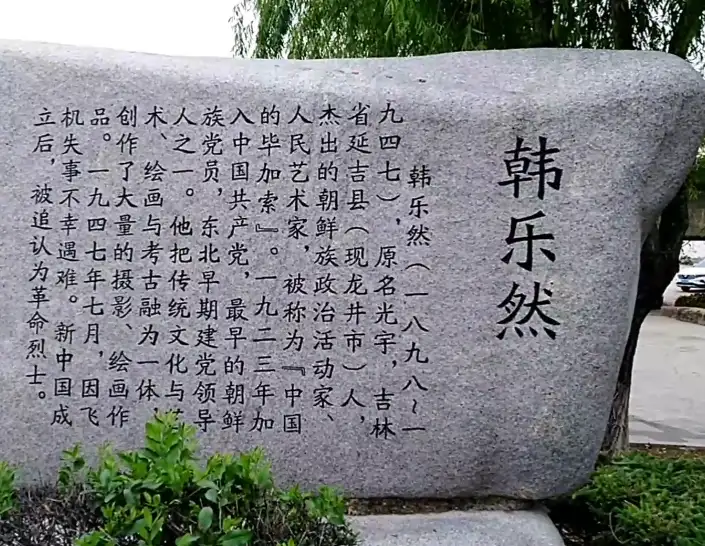 韩乐然
韩乐然（一八九八~一
九四七），原名光宇，吉林
省延吉县（现龙井市）人，
杰出的朝鲜族政治活动家、
人民艺术家，被称为『中国
的毕加索』。一九二三年加
入中国共产党，最早的朝鲜
族党员，东北早期建党领导
人之一。他把传统文化与
术、绘画与考古融为一体，
创作了大量的摄影、绘画作
品。一九四七年七月，因飞
机失事不幸遇难。新中国成
立后，被追认为革命烈士。